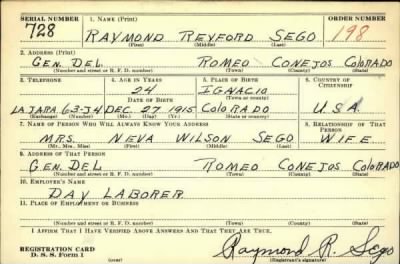 SERIAL NUMBER 1. NAME (Print) ORDER NUMBER
728 RAYMOND REYFORD SEGO 198
(First) (Middle) (Last)
2. ADDRESS (Print)
GEN. DEL. ROMEO CONEJOS COLORADO
(Number and street or R. F. D. number) (Town) (County) (State)
3. TELEPHONE 4. AGE IN YEARS 5. PLACE OF BIRTH 6. COUNTRY OF CITIZENSHIP
24 IGNACIO
DATE OF BIRTH (Town or county)
LA JARA 63-J4 DEC. 27 1915 COLORADO U.S.A.
(Exchange) (Number) (Mo.) (Day) (Yr.) (State or country)
7. NAME OF PERSON WHO WILL ALWAYS KNOW YOUR ADDRESS 8. RELATIONSHIP OF THAT PERSON
MRS. NEVA WILSON SEGO WIFE
(Mr., Mrs., Miss) (First) (Middle) (Last)
9. ADDRESS OF THAT PERSON
GEN. DEL. ROMEO CONEJOS COLORADO
(Number and street or R. F. D. number) (Town) (County) (State)
10. EMPLOYER'S NAME
DAY LABORER
11. PLACE OF EMPLOYMENT OR BUSINESS
(Number and street or R. F. D. number) (Town) (County) (State)
I AFFIRM THAT I HAVE VERIFIED ABOVE ANSWERS AND THAT THEY ARE TRUE.
REGISTRATION CARD
D. S. S. Form 1
Raymond R. Sego
(Registrant's signature)